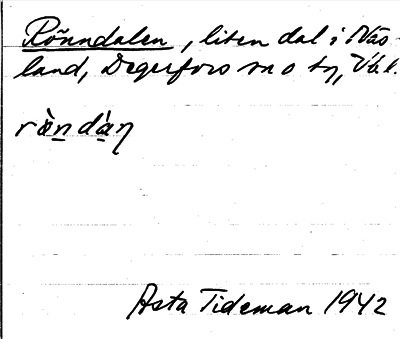 Rönndalen, liten dal i Näs-
land, Degerfors sn o tg, Vb l.
rǜn̲dà̲ŋ
Asta Tideman 1942